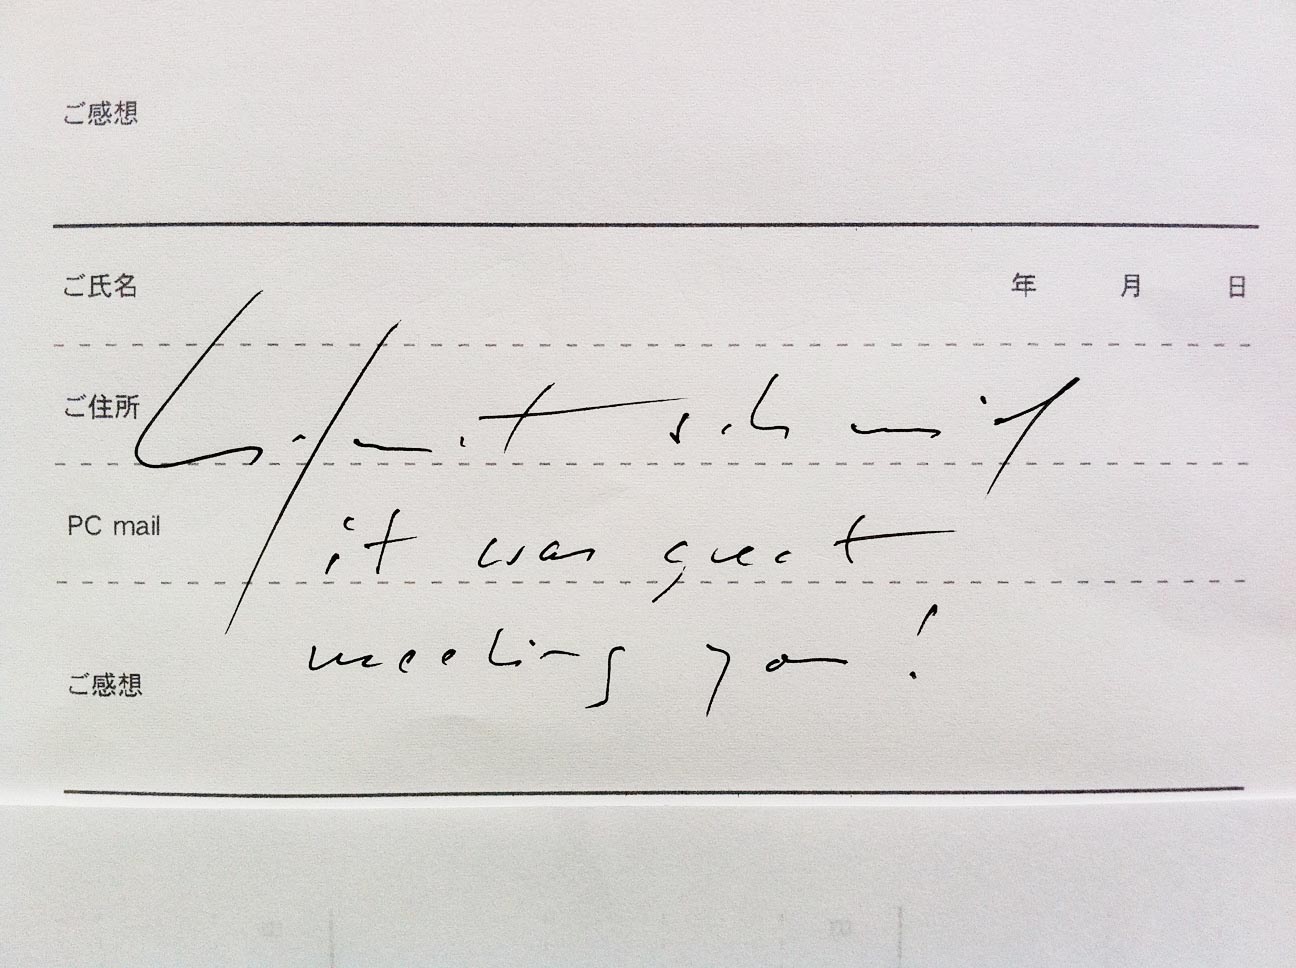 ご感想
ご氏名 年 月 日
ご住所
PC mail it was great
meeting you!
ご感想